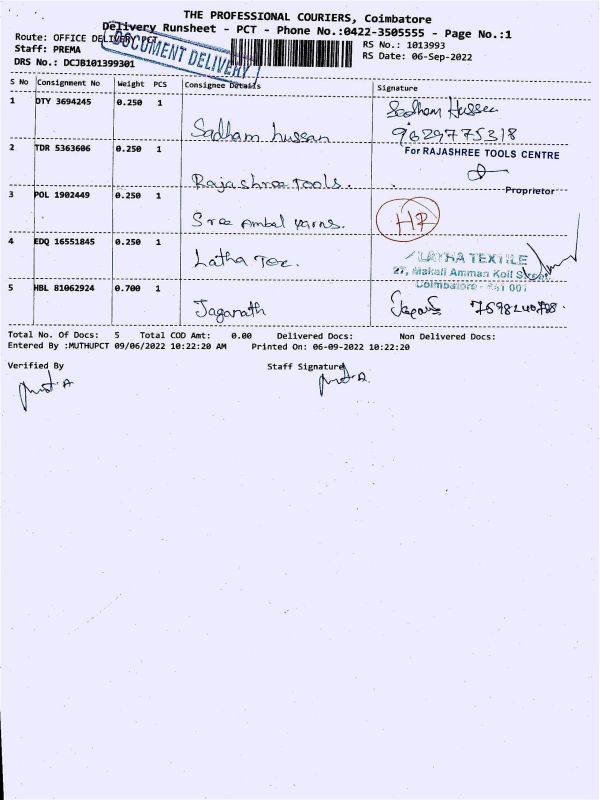 THE PROFESSIONAL COURIERS, Coimbatore
Delivery Runsheet - PCT - Phone No.:0422-3505555 - Page No.:1
Route: OFFICE DELIVERY PCT
RS No.: 1013993
Staff: PREMA
RS Date: 06-Sep-2022
DRS No.: DCJB101399301
DOCUMENT DELIVERY
S No Consignment No Weight PCS Consignee Details Signature
1 DTY 3694245 0.250 1 Sadham hussan Sadham Hussen
9629775318
2 TDR 5363606 0.250 1 Rajashree Tools. For RAJASHREE TOOLS CENTRE
Proprietor
3 POL 1902449 0.250 1 Sree Ambal yarns. HR
4 EDQ 16551845 0.250 1 Latha Tex. LATHA TEXTILE
27, Makali Amman Koil Street
Coimbatore - 641 001
5 HBL 81062924 0.700 1 Jaganath
Total No. Of Docs: 5 Total COD Amt: 0.00 Delivered Docs: Non Delivered Docs:
Entered By :MUTHUPCT 09/06/2022 10:22:20 AM Printed On: 06-09-2022 10:22:20
Verified By Staff Signature